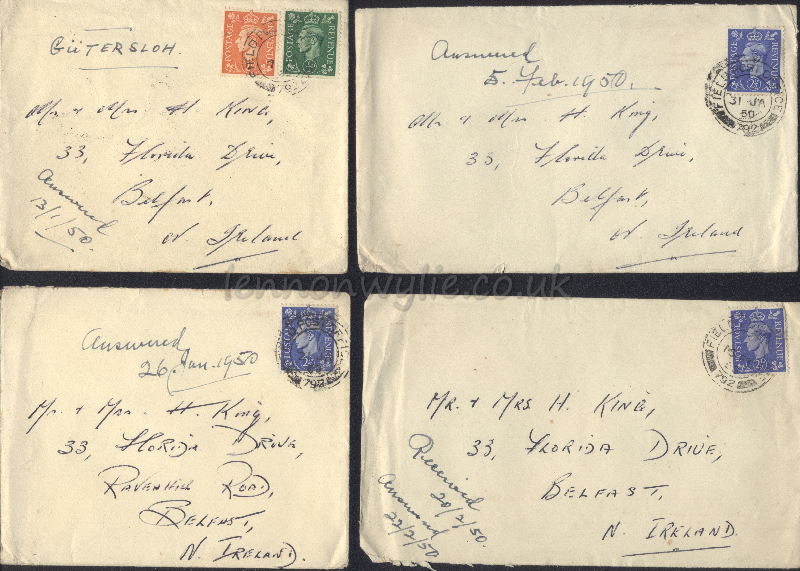 GÜTERSLOH.
POSTAGE REVENUE
POSTAGE REVENUE
FIELD
792
Mr & Mrs H. King,
33, Florida Drive,
Belfast,
N. Ireland
Answered
13/1/50.
Answered
5. Feb. 1950.
POSTAGE REVENUE
FIELD
31 JA
50
792
Mr & Mrs H. King,
33, Florida Drive,
Belfast,
N. Ireland
lennonwylie.co.uk
Answered
26 Jan. 1950
POSTAGE REVENUE
792
Mr. & Mrs. H. King,
33, FLORIDA DRIVE,
RAVENHILL ROAD,
BELFAST,
N. IRELAND.
POSTAGE REVENUE
FIELD
792
MR. & MRS H. KING,
33, FLORIDA DRIVE,
BELFAST,
N. IRELAND.
Received
20/2/50.
Answered
22/2/50